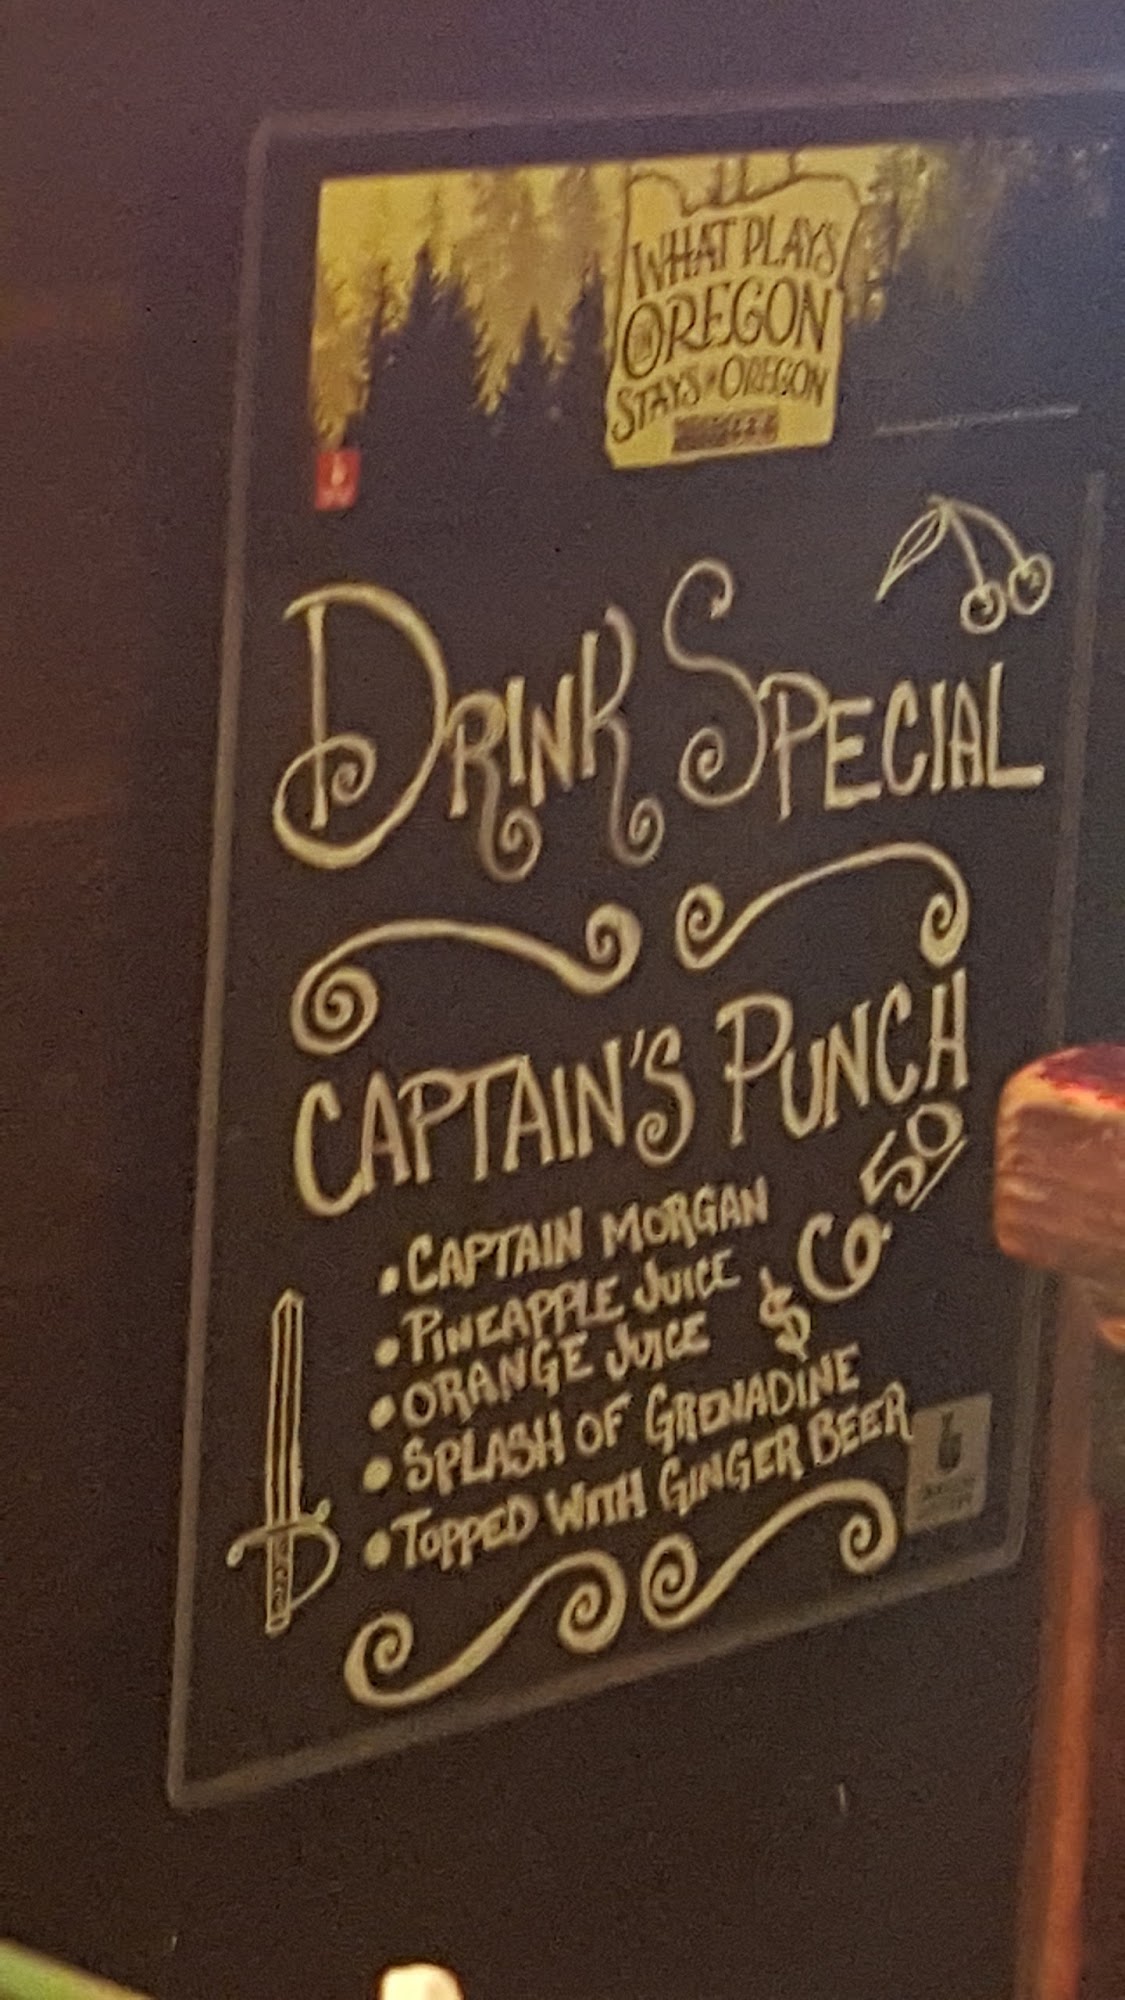 WHAT PLAYS
IN OREGON
STAYS IN OREGON
DRINK SPECIAL
CAPTAIN'S PUNCH
• CAPTAIN MORGAN
• PINEAPPLE JUICE
• ORANGE JUICE
$6.50
• SPLASH OF GRENADINE
• TOPPED WITH GINGER BEER